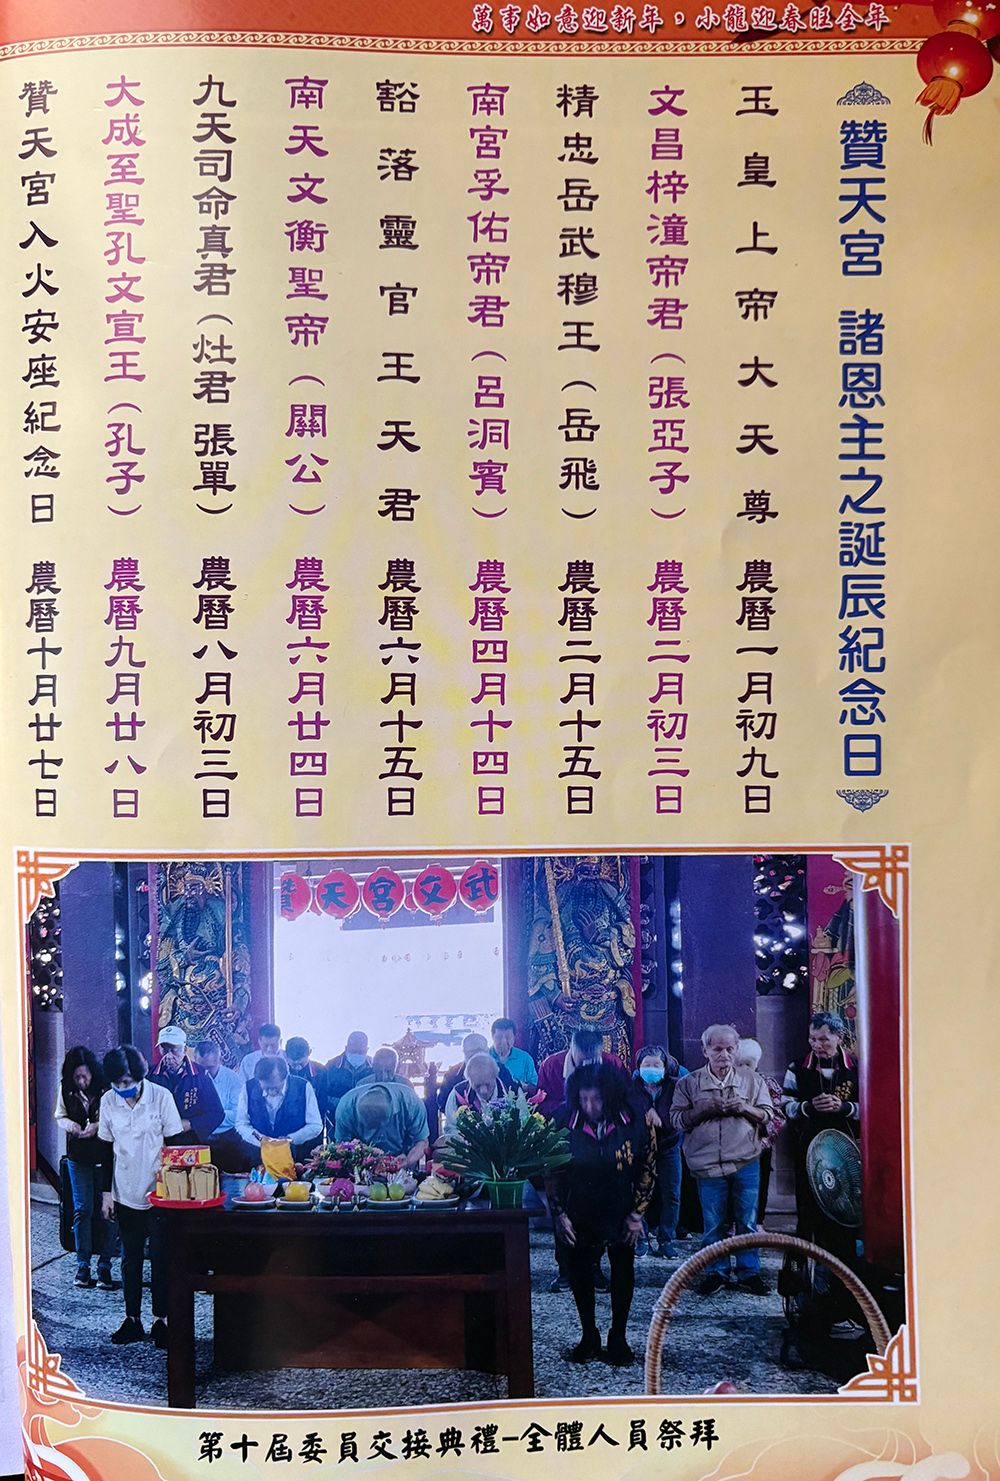 萬事如意迎新年，小龍迎春旺全年
贊天宮 諸恩主之誕辰紀念日
玉皇上帝大天尊 農曆一月初九日
文昌梓潼帝君（張亞子） 農曆二月初三日
精忠岳武穆王（岳飛） 農曆二月十五日
南宮孚佑帝君（呂洞賓） 農曆四月十四日
豁落靈官王天君 農曆六月十五日
南天文衡聖帝（關公） 農曆六月廿四日
九天司命真君（灶君 張單） 農曆八月初三日
大成至聖孔文宣王（孔子） 農曆九月廿八日
贊天宮入火安座紀念日 農曆十月廿七日
天宮文武
第十屆委員交接典禮-全體人員祭拜